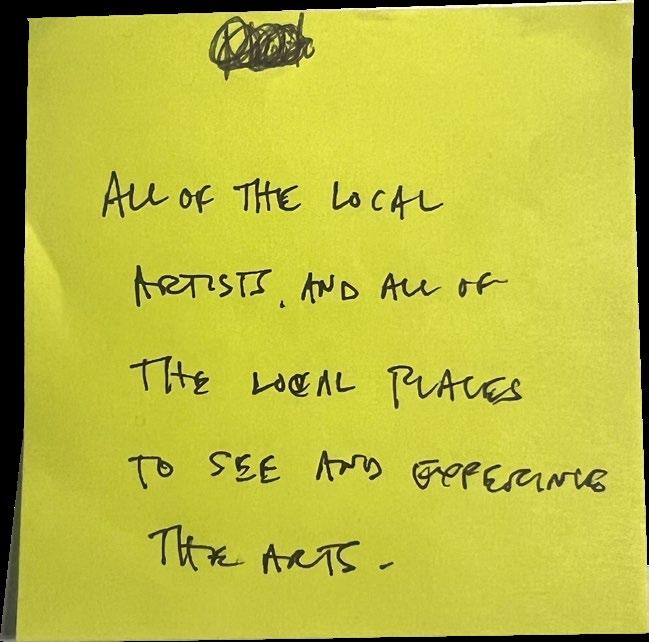 ALL OF THE LOCAL
ARTISTS, AND ALL OF
THE LOCAL PLACES
TO SEE AND EXPERIENCE
THE ARTS.